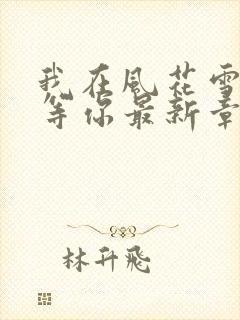 我在風花雪
等你最新章
林升飛